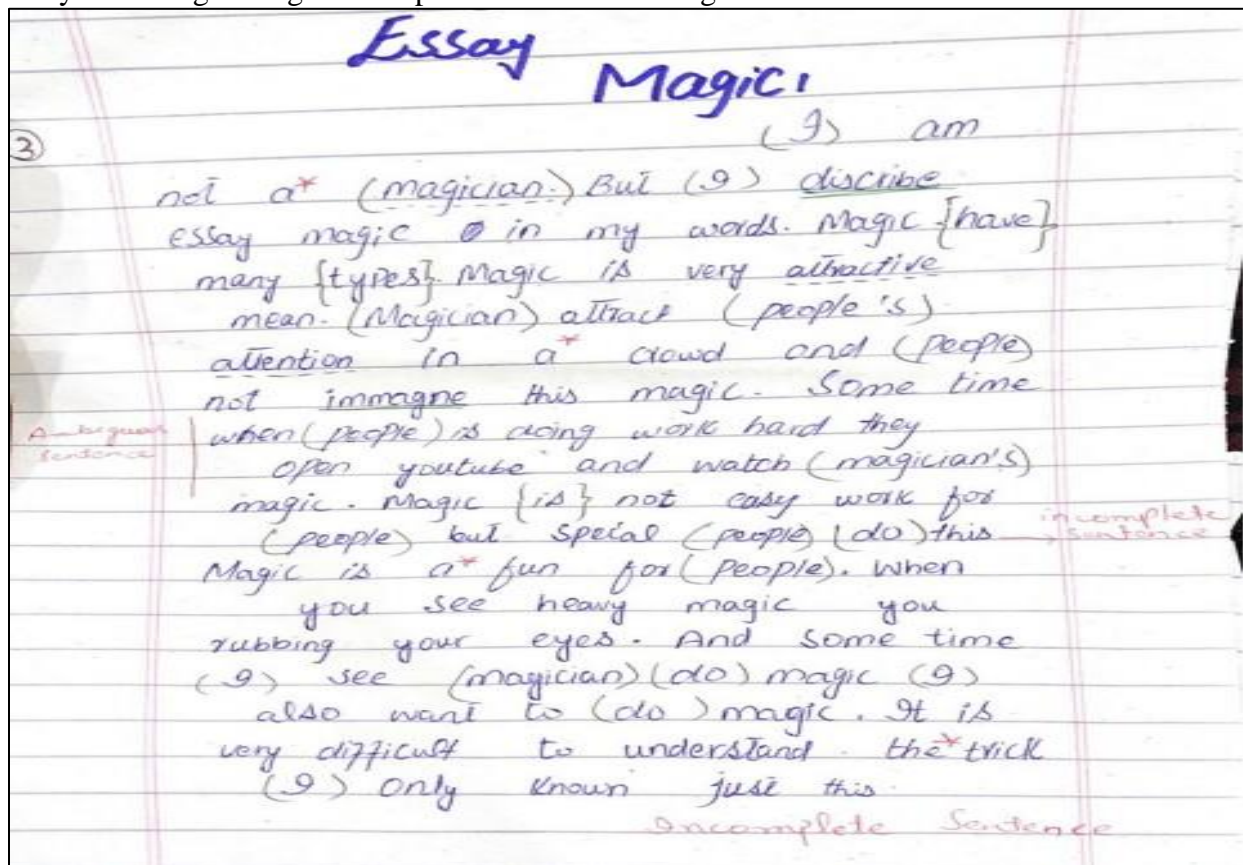 Essay
Magic,
3
(I) am
not a* (magician.) But (I) discribe
essay magic in my words. Magic {have}
many {types}. Magic is very attractive
mean. (Magician) attract (people's)
attention in a* crowd and (people)
not immagne this magic. Some time
Ambiguous sentence
when (people) is doing work hard they
open youtube and watch (magician's)
magic. Magic {is} not easy work for
(people) but specal (people) (do) this
incomplete sentence
Magic is a* fun for (people). When
you see heavy magic you
rubbing your eyes. And some time
(I) see (magician) (do) magic (I)
also want to (do) magic. It is
very difficult to understand. the* trick
(I) only known just this.
Incomplete Sentence